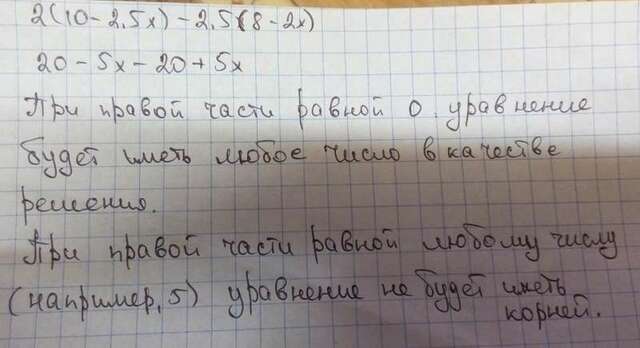 2(10-2,5x)-2,5(8-2x)
20-5x-20+5x
При правой части равной 0 уравнение
будет иметь любое число в качестве
решения.
При правой части равной любому числу
(например, 5) уравнение не будет иметь
корней.